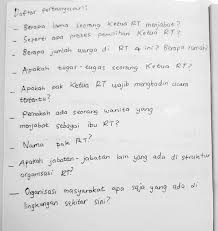 Daftar pertanyaan:
- Berapa lama seorang Ketua RT menjabat?
- Seperti apa proses pemilihan Ketua RT?
- Berapa jumlah warga di RT 4 ini? Berapa rumah
- Apakah tugas-tugas seorang Ketua RT?
- Apakah pak Ketua RT wajib menghadiri acara
tertentu?
- Pernakah ada seorang wanita yang
menjabat sebagai ibu RT?
- Nama pak RT?
- Apakah jabatan-jabatan lain yang ada di struktur
organisasi RT?
- Organisasi masyarakat apa saja yang ada di
lingkungan sekitar sini?